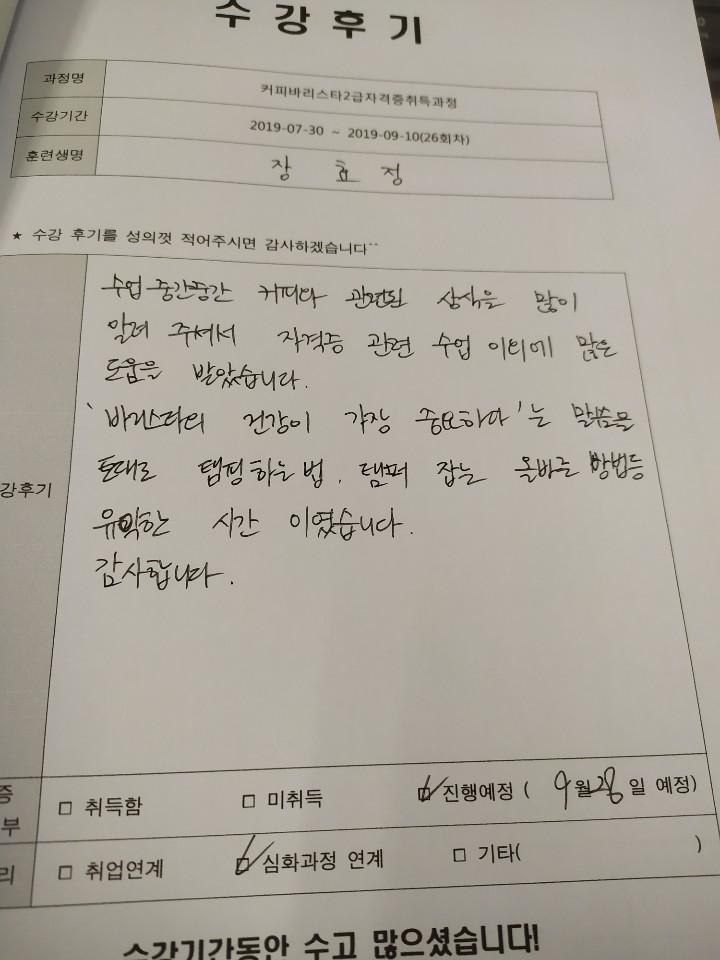 수강후기
과정명 커피바리스타2급자격증취득과정
수강기간 2019-07-30 ~ 2019-09-10(26회차)
훈련생명 장 효 정
★ 수강 후기를 성의껏 적어주시면 감사하겠습니다^^
수업 중간중간 커피와 관련된 상식을 많이
알려 주셔서 자격증 관련 수업 이외에 많은
도움을 받았습니다.
'바리스타의 건강이 가장 중요하다'는 말씀을
토대로 탬핑하는법, 탬퍼 잡는 올바른 방법등
유익한 시간 이였습니다.
감사합니다.
강후기
증
부
□ 취득함 □ 미취득 ☑ 진행예정 ( 9월28일 예정)
리 □ 취업연계 ☑ 심화과정 연계 □ 기타( )
수강기간동안 수고 많으셨습니다!